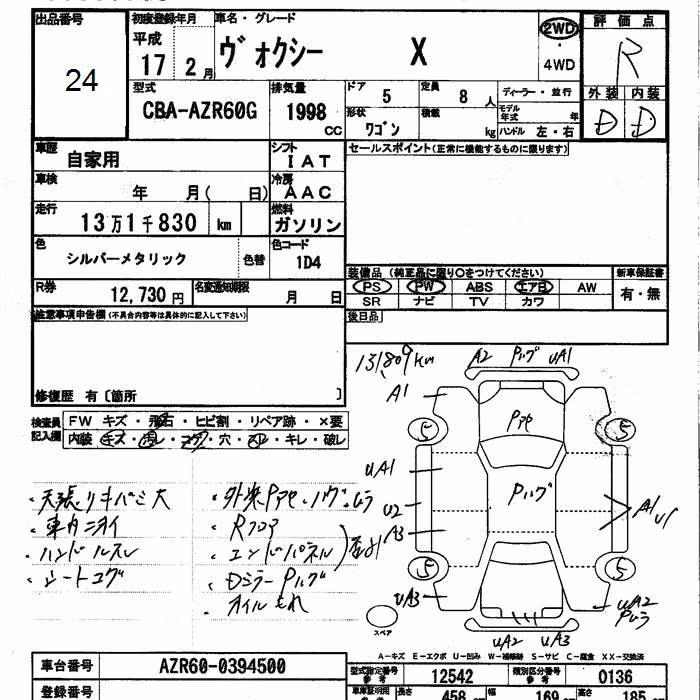 出品番号 初度登録年月 車名・グレード 2WD 評価点
24 平成 17 2月 ヴォクシー X ・ 4WD R
型式 排気量 ドア 定員 ディーラー・並行 外装 内装
CBA-AZR60G 1998 CC 5 8人 モデル年式 年 D D
形状 積載
ワゴン kg ハンドル 左・右
車歴 自家用 シフト IAT セールスポイント(正常に機能するものに限ります)
車検 年 月( 日) 冷房 AAC
走行 13万1千830 km 燃料 ガソリン
色 シルバーメタリック 色替 色コード 1D4
装備品(純正品に限り○をつけてください) 新車保証書
R券 12,730円 名変通知期限 月 日 PS PW ABS エアB AW 有・無
SR ナビ TV カワ
注意事項申告欄(不具合内容等は具体的に記入して下さい) 後日品
修復歴 有〔箇所 〕
131,809km A2 Pハゲ UA1
A1
検査員記入欄 FW キズ・飛石・ヒビ割・リペア跡・×要
内装 キズ・汚レ・コゲ・穴・スレ・キレ・破レ
Pアセ
5 5
UA1 Pハゲ
U2 A1 U1
A3
5 5
UA3 UA2 Pムラ
UA2 UA3
・天張リキバミ大
・車内ニオイ
・ハンドルスレ
・シートコゲ
・外装Pアセ・ハゲ・ムラ
・Rフロア
・エンドパネル
・DミラーPハゲ
・オイルもれ
スペア
A-キズ E-エクボ U-凹み W-補修跡 S-サビ C-腐食 XX-交換済
車台番号 AZR60-0394500 型式指定番号 参考 12542 類別区分番号 参考 0136
登録番号 車庫証明用 参考 長さ 458 cm 幅 169 cm 高さ 185 cm